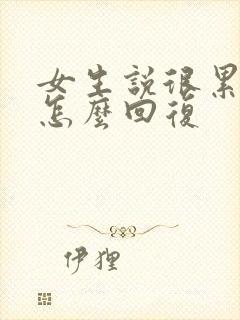 女生説很累
怎麼回復
伊狸